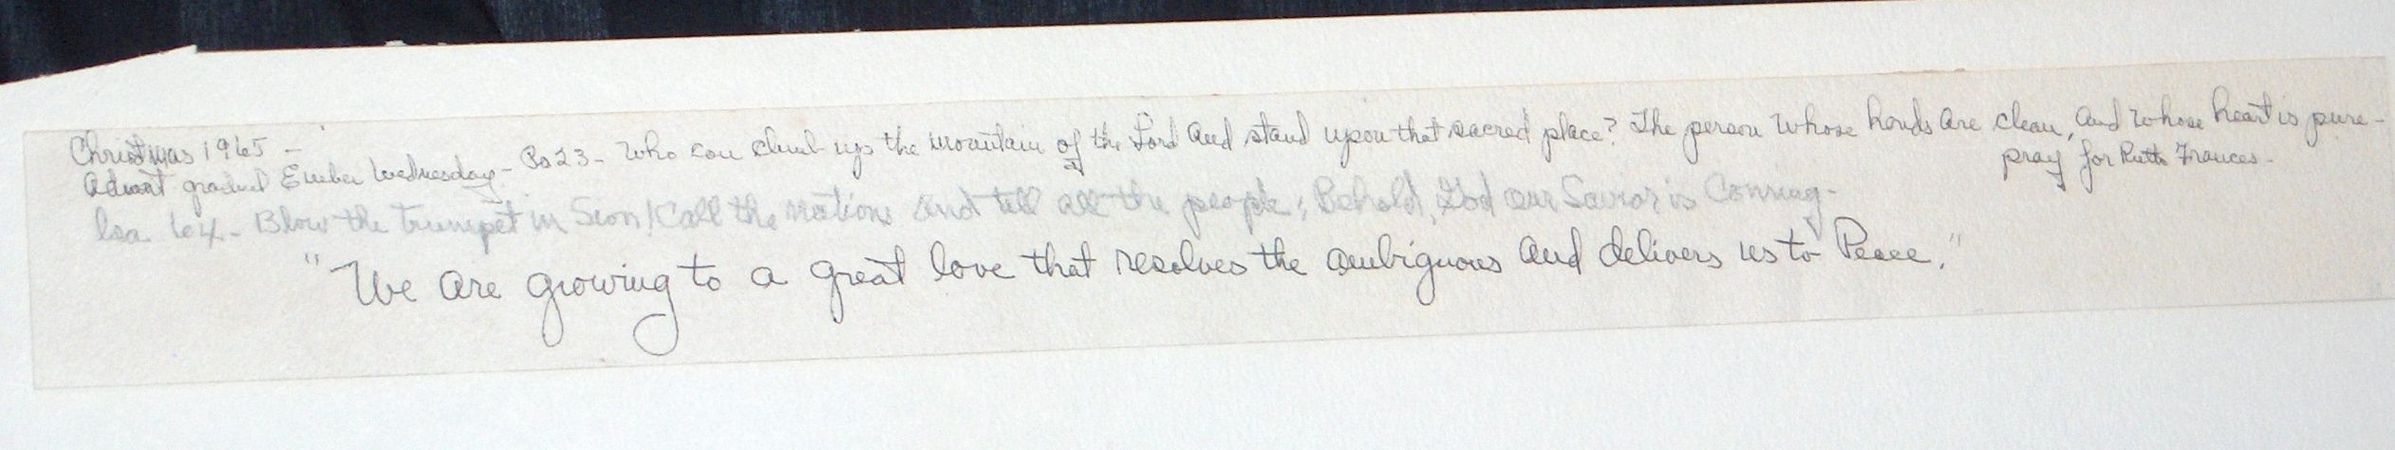 Christmas 1965 -
Advent gradual Ember Wednesday - Ps 23 - Who can climb up the mountain of the Lord and stand upon that sacred place? The person whose hands are clean, and whose heart is pure -
pray for Ruth Frances -
Isa 64 - Blow the trumpet in Sion / Call the nations and tell all the people; Behold, God our Savior is Coming -
"We are growing to a great love that resolves the ambiguous and delivers us to Peace."